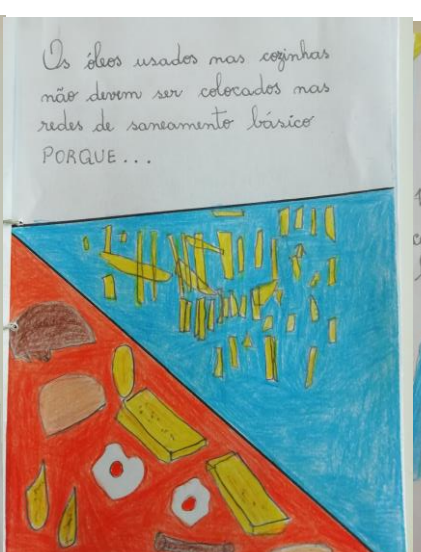 Os óleos usados nas cozinhas
não devem ser colocados nas
redes de saneamento básico
PORQUE...